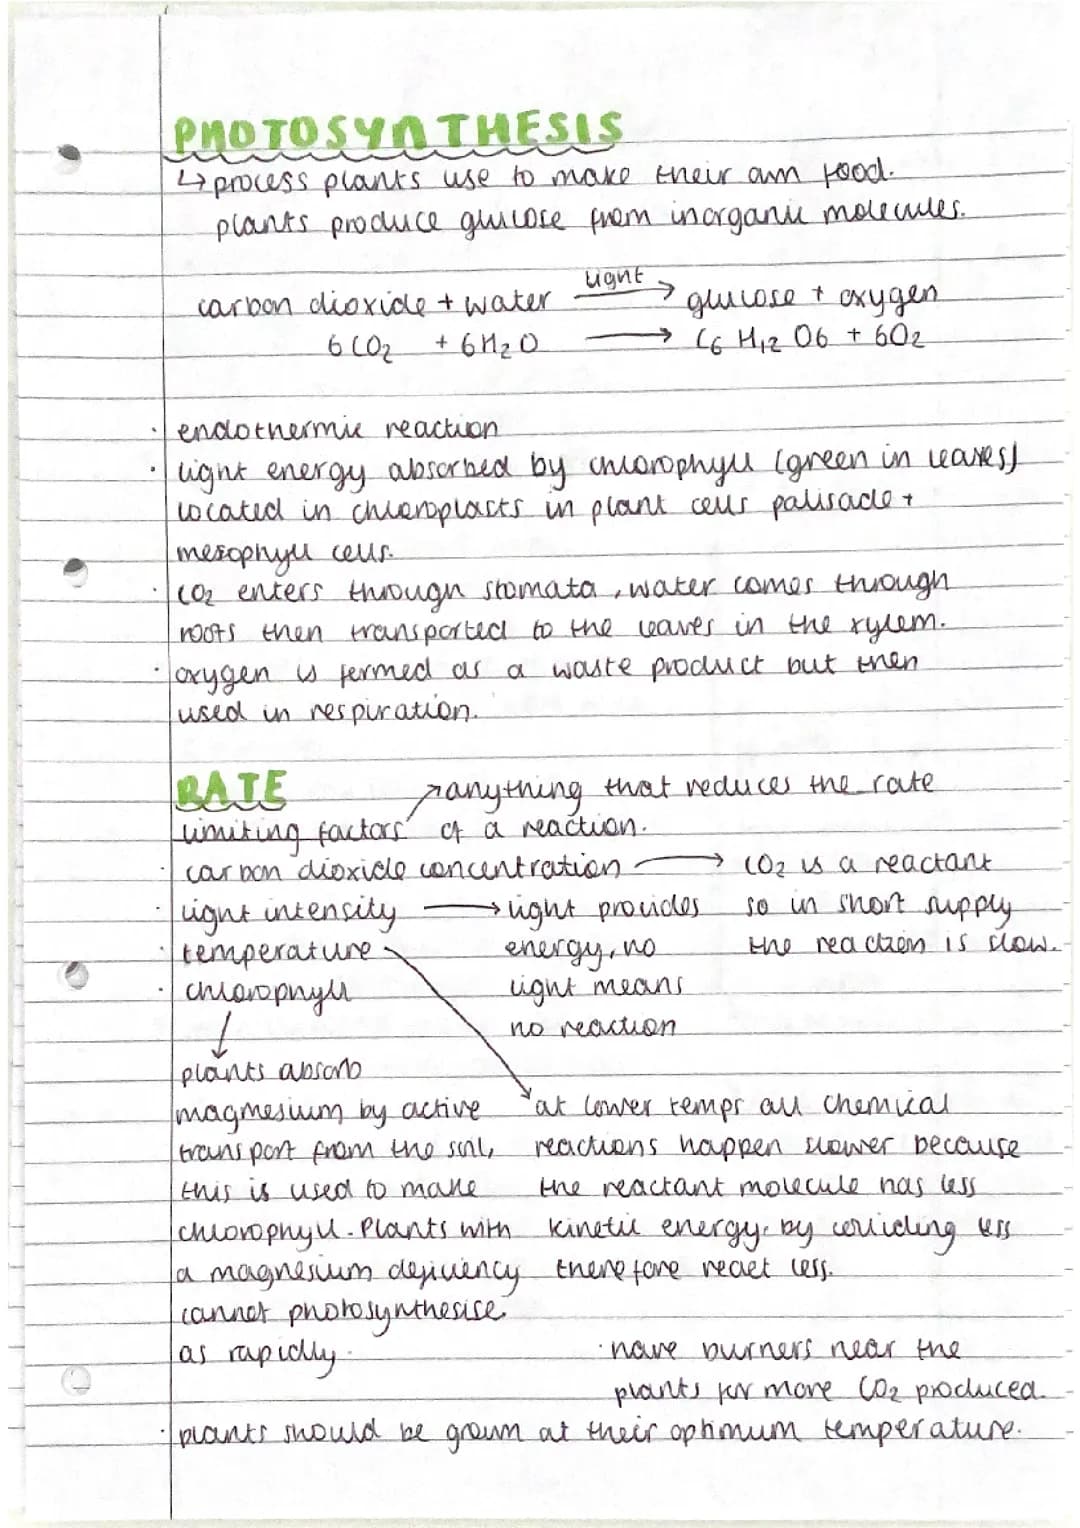 PHOTOSYNTHESIS
↳ process plants use to make their own food.
plants produce glucose from inorganic molecules.
light
carbon dioxide + water → glucose + oxygen
6CO2 + 6H2O → C6H12O6 + 6O2
· endothermic reaction
· light energy absorbed by chlorophyll (green in leaves)
located in chloroplasts in plant cells palisade +
mesophyll cells.
· CO2 enters through stomata, water comes through
roots then transported to the leaves in the xylem.
· oxygen is formed as a waste product but then
used in respiration.
RATE
limiting factors ↗ anything that reduces the rate
of a reaction.
· carbon dioxide concentration → CO2 is a reactant
so in short supply
the reaction is slow.
· light intensity → light provides
energy, no
light means
no reaction
· temperature
· chlorophyll
plants absorb
magmesium by active
transport from the soil,
this is used to make
chlorophyll. Plants with
a magnesium deficiency
cannot photosynthesise
as rapidly.
at lower temps all chemical
reactions happen slower because
the reactant molecule has less
kinetic energy. by colliding less
therefore react less.
· have burners near the
plants for more CO2 produced.
· plants should be grown at their optimum temperature.